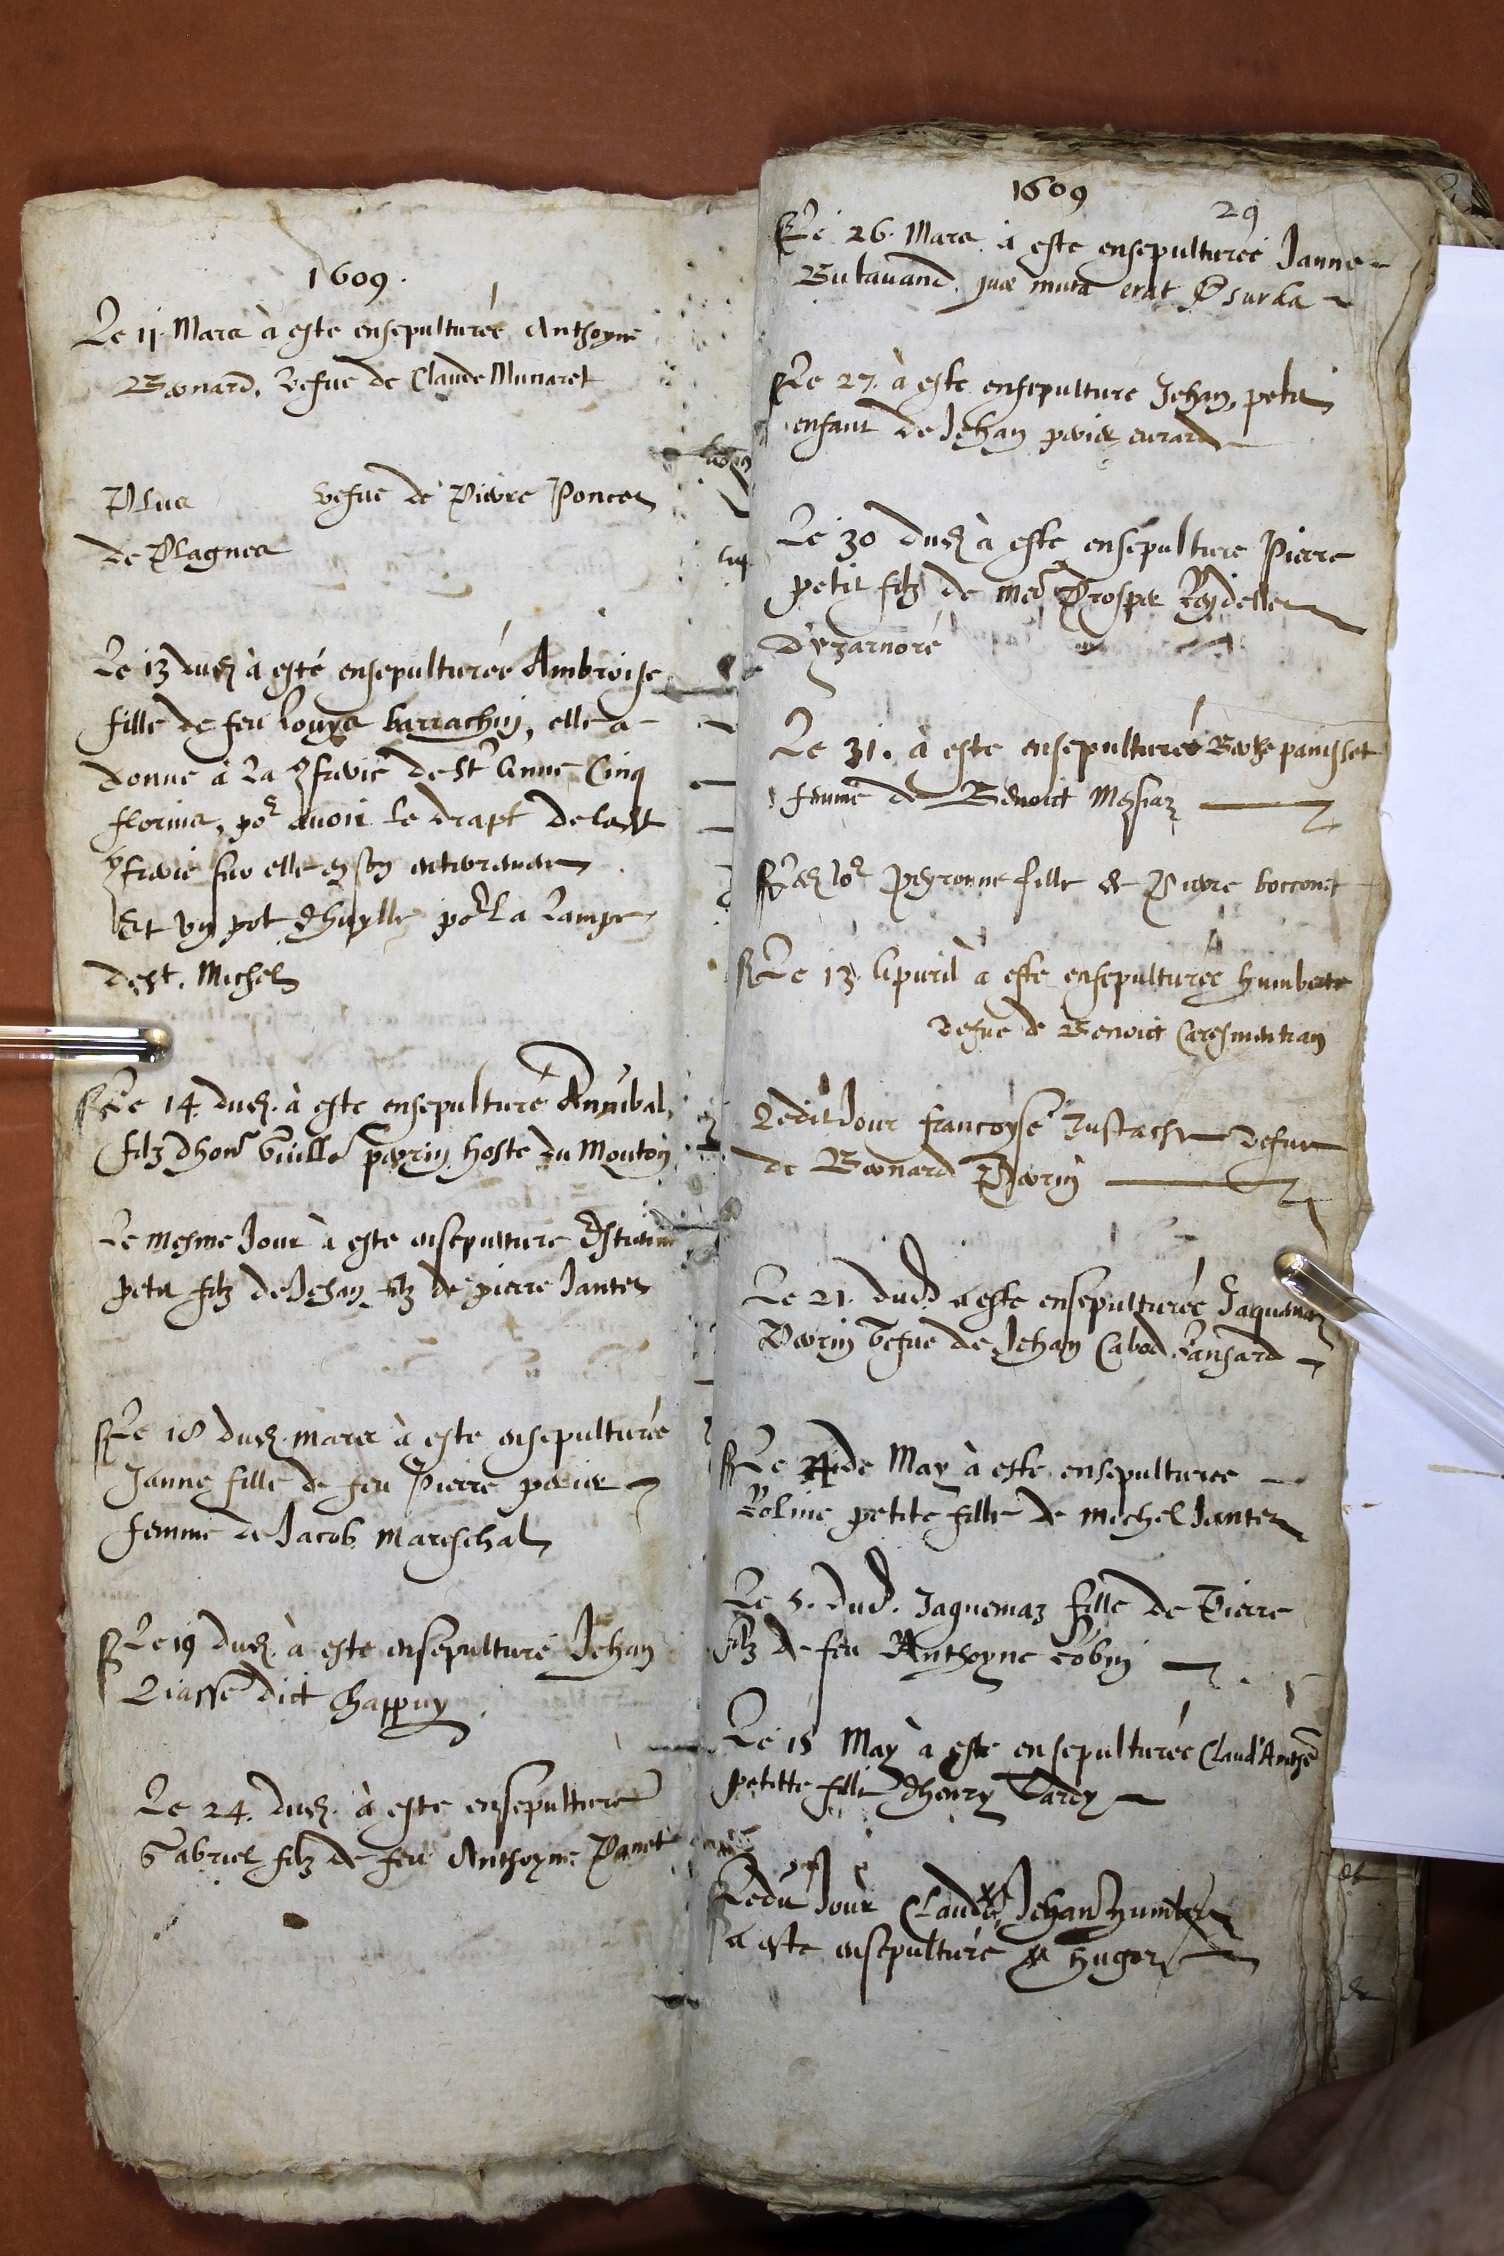 1609.
Le 11. Mars à este ensepulturée Anthoyne
Bernard, vefue de Claude Munaret
Plus vefue de Pierre Poncet
de Plagnes
Le 13 dud. à esté ensepulturée Ambroise
fille de feu Louys barrachin, elle a
donne à la 9frerie de St Anne Cinq
florins, por avoir le drapt de ladt
9frerie sur elle en son enterrement
Et un pot dhuylle por la lampe
de St. Michel
Le 14. dud. à este ensepulturé Annibal,
filz dhonr Guille perrin hoste du Mouton
Le mesme Jour à este ensepulture
petit filz de Jehan filz de pierre Jantet
Le 18 dud. mars à este ensepulturée
Janne fille de feu Pierre perier
femme de Jacob Mareschal
Le 19 dud. à este ensepulturé Jehan
dict Chappuy
Le 24. dud. à este ensepulturé
Gabriel filz de feu Anthoyne Panet
1609
29
Le 26. Mars à este ensepulturée Janne
Butavand. quæ muta erat & surda
Le 27. à este ensepulture Jehan, petit
enfant de Jehan perier
Le 30 dud. à este ensepulture Pierre
petit filz de me Prosper Reydellet
dyzarnore
Le 31. à este ensepulturée panisset
femme de Benoict Messiaz
Peyronne fille de Pierre boccont
Le 13. Apvril à este ensepulturée humberte
vefue de Benoict Caresmentran
Ledit Jour francoyse Eustache vefue
de Bernard Perrin
Le 21. dud. a este ensepulturée Jaquemaz
Perrin vefue de Jehan Cabod Lansard
Le 4 de May à este ensepulturee
Roline petite fille de michel Jantet
Le 5. dud. Jaquemaz fille de Pierre
filz de feu Anthoyne robin
Le 15 May à este ensepulturée
petitte fille dhenry Tardy
Ledit Jour Claude Jehan humbert
a este ensepulturé